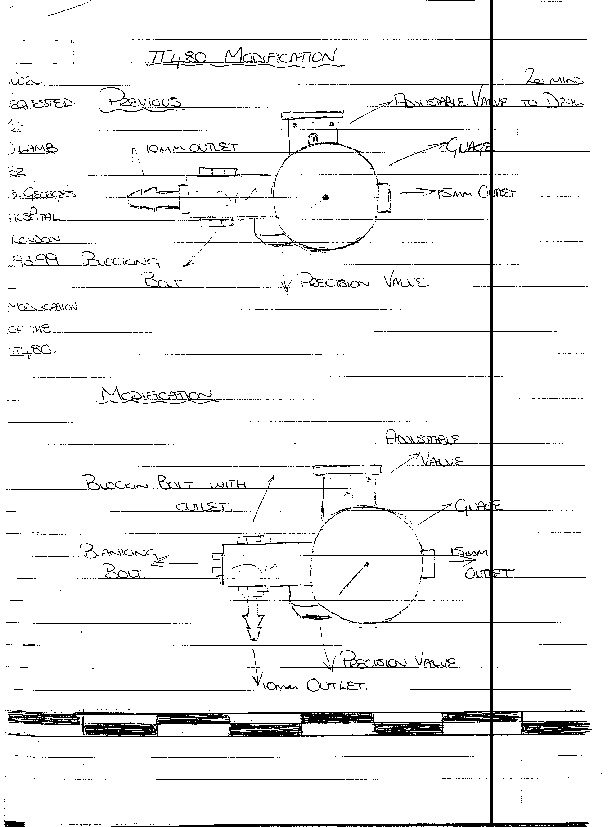 MODIFICATION
20 MINS
PREVIOUS
ADJUSTABLE VALVE TO
LAMB
10MM OUTLET
GUAGE
15MM OUTLET
HOSPITAL
LONDON
BLOCKING
BOLT
PRECISION VALVE
MODIFICATION
OF THE
MODIFICATION
ADJUSTABLE
VALVE
BLOCKIN BOLT WITH
OUTLET
GUAGE
BLANKING
BOLT
15MM
OUTLET
PRECISION VALVE
10mm OUTLET.